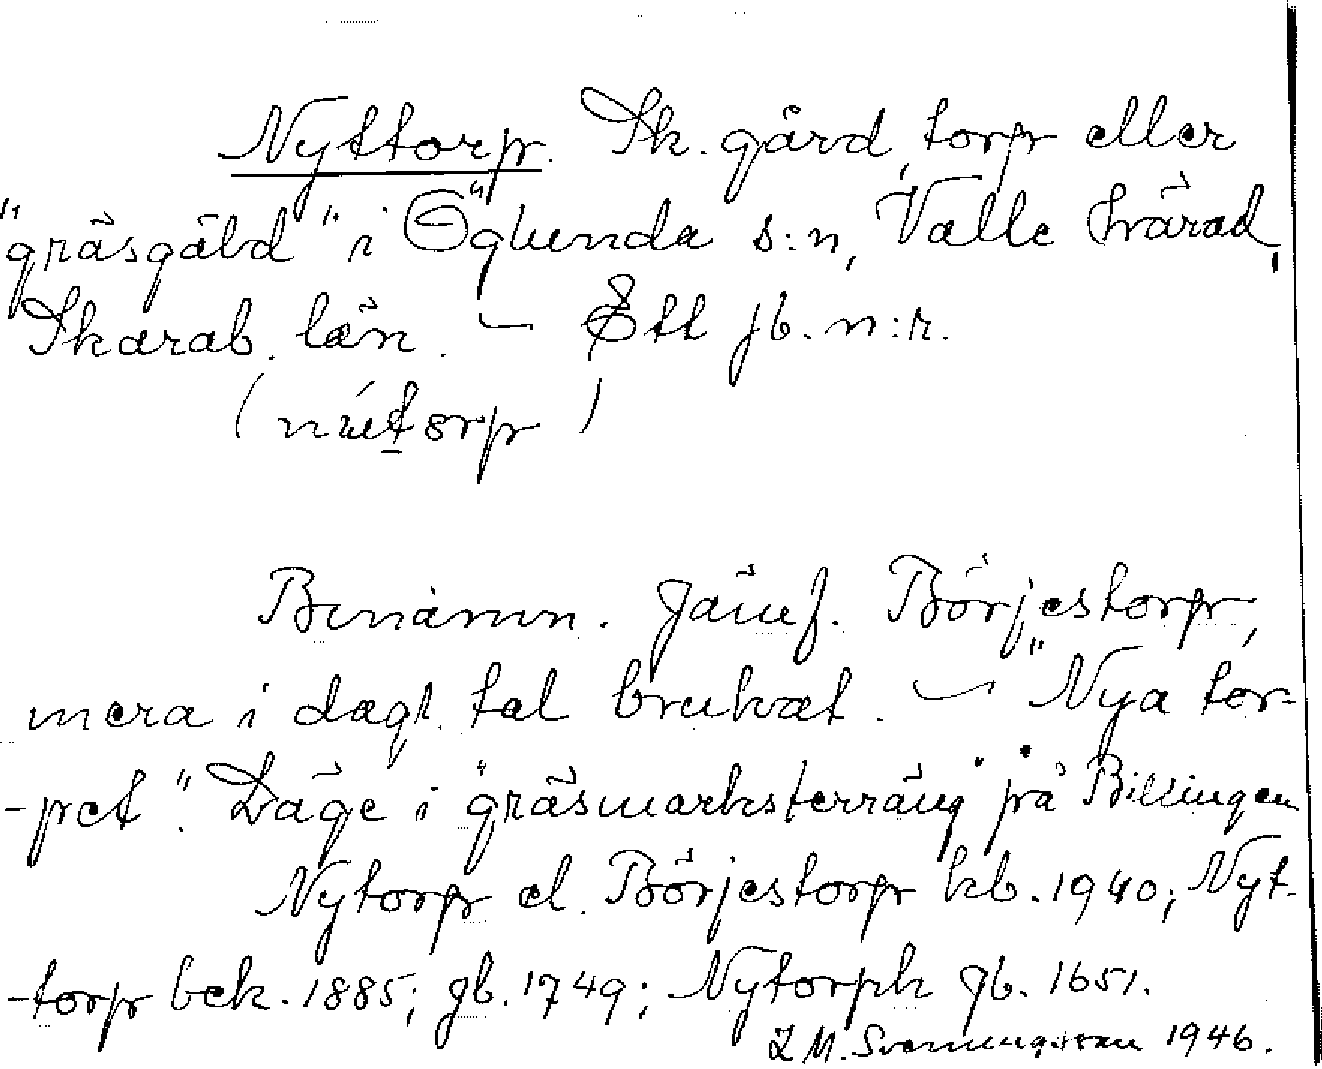 Nyttorp. Sk. gård, torp eller
"gräsgäld" i Öglunda s:n, Valle härad,
Skarab. län. — Ett jb. n:r.
( nútorp )
Binämn. Jämf. Börjestorp,
mera i dagl. tal brukat. — "Nya tor-
-pet". Läge i "gräsmarksterräng" på Billingen
Nytorp el. Börjestorp kb. 1940; Nyt-
-torp bek. 1885; jb. 1749; Nytorph jb. 1651.
Z M. Svenningsson 1946.